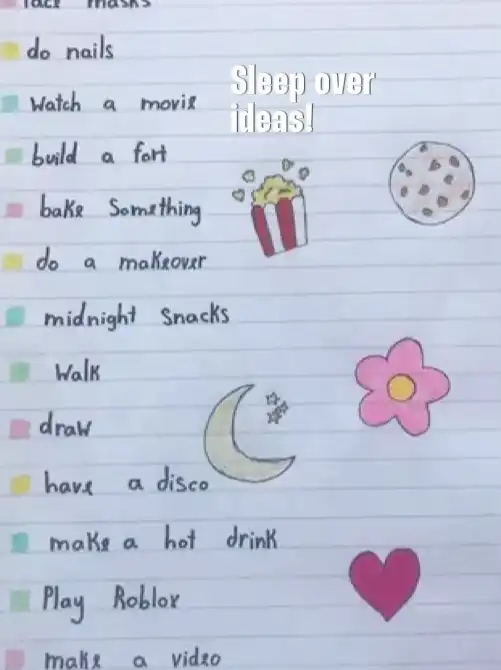 face masks
do nails
Sleep over
ideas!
Watch a movie
build a fort
bake Something
do a makeover
midnight Snacks
Walk
draw
have a disco
make a hot drink
Play Roblox
make a video